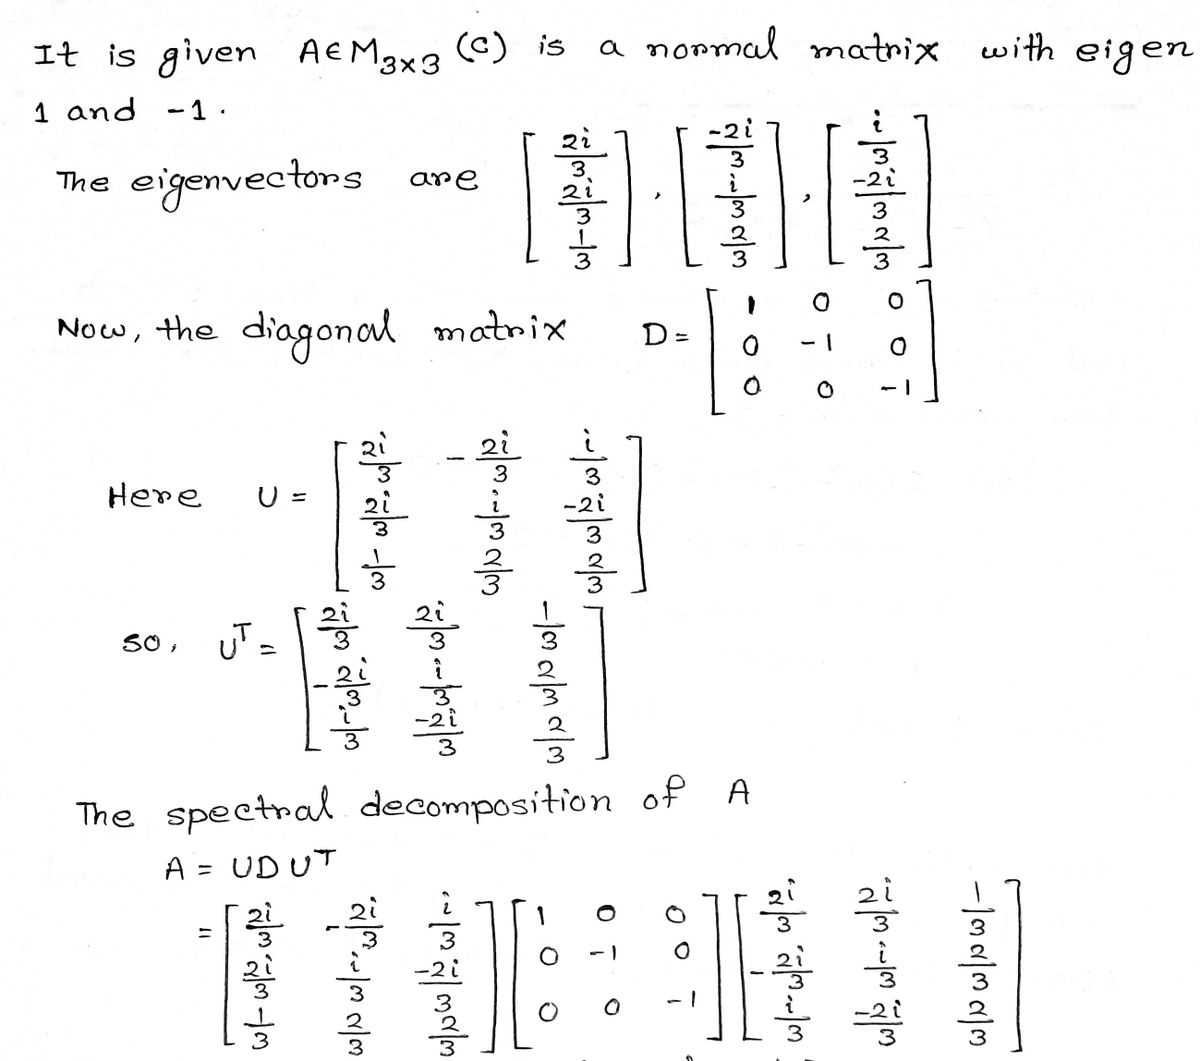 It is given A∈M₃ₓ₃ (C) is a normal matrix with eigen
1 and -1.
The eigenvectors are [2i/3, 2i/3, 1/3], [-2i/3, i/3, 2/3], [i/3, -2i/3, 2/3]
Now, the diagonal matrix D = [1 0 0; 0 -1 0; 0 0 -1]
Here U = [2i/3 -2i/3 i/3; 2i/3 i/3 -2i/3; 1/3 2/3 2/3]
so, Uᵀ = [2i/3 2i/3 1/3; -2i/3 i/3 2/3; i/3 -2i/3 2/3]
The spectral decomposition of A
A = UDUᵀ
= [2i/3 -2i/3 i/3; 2i/3 i/3 -2i/3; 1/3 2/3 2/3] [1 0 0; 0 -1 0; 0 0 -1] [2i/3 2i/3 1/3; -2i/3 i/3 2/3; i/3 -2i/3 2/3]